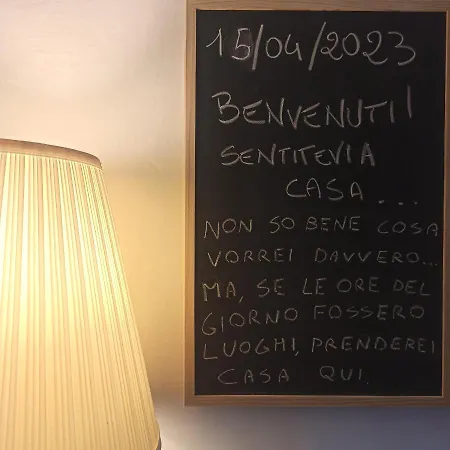 15/04/2023
BENVENUTI!
SENTITEVI A
CASA...
NON SO BENE COSA
VORREI DAVVERO...
MA, SE LE ORE DEL
GIORNO FOSSERO
LUOGHI, PRENDEREI
CASA QUI.